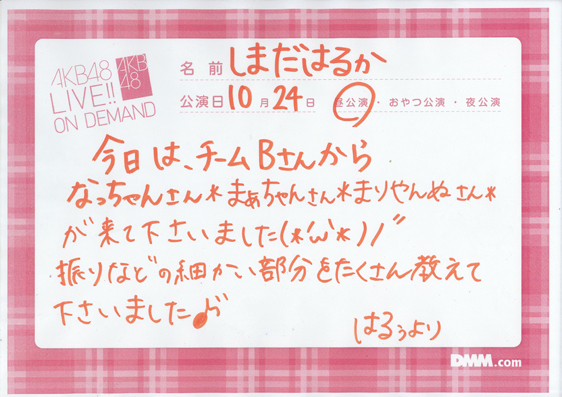 AKB48
LIVE!!
ON DEMAND
AKB
48
名前 しまだはるか
公演日 10月24日 昼公演・おやつ公演・夜公演
今日は、チームBさんから
なっちゃんさん*まぁちゃんさん*まりやんぬさん*
が来て下さいました(*'ω'*)ノ"
振りなどの細かい部分をたくさん教えて
下さいました♪
はるぅより
DMM.com